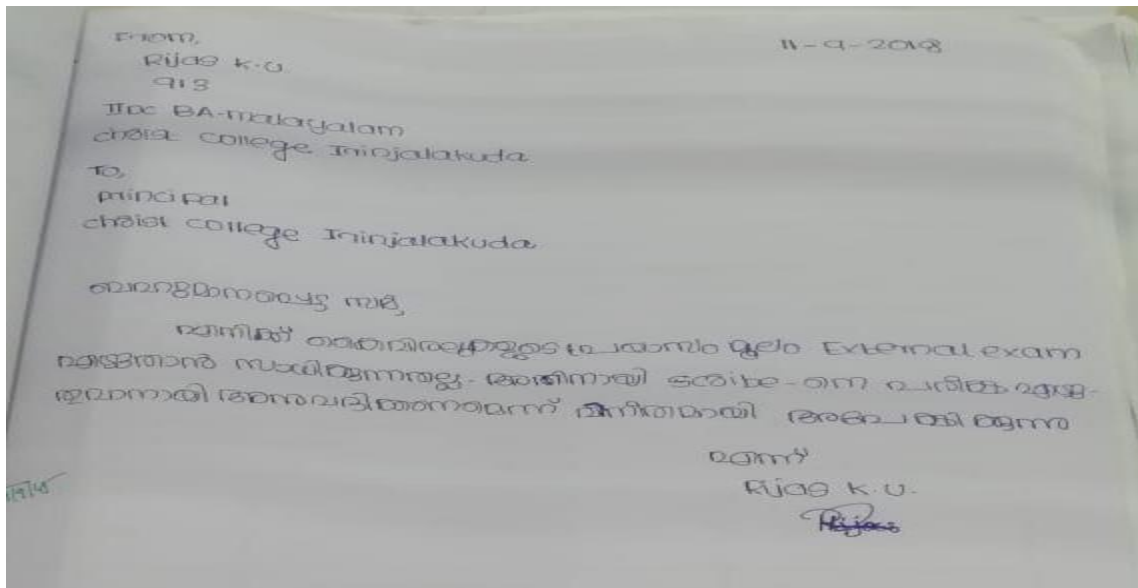 From,
11-9-2018
Rijas K.U.
913
IIDC BA-malayalam
christ college Irinjalakuda
To,
principal
christ college Irinjalakuda
ബഹുമാനപ്പെട്ട സർ,
എനിക്ക് കൈവിരലുകളുടെ പ്രയാസം മൂലം External exam
എഴുതാൻ സാധിക്കുന്നതല്ല. അതിനായി scribe-നെ പരീക്ഷ എഴു-
തുവാനായി അനുവദിക്കണമെന്ന് വിനീതമായി അപേക്ഷിക്കുന്നു
എന്ന്
Rijas K.U.
Rijas